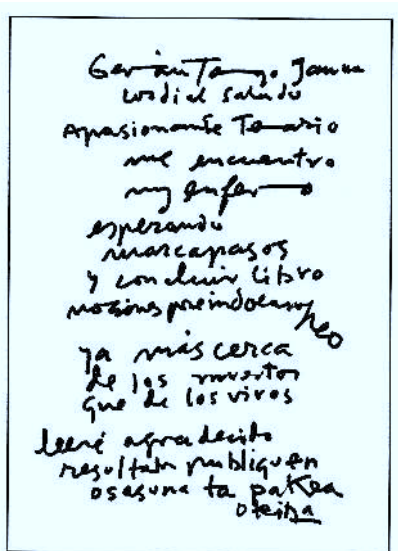 cordial saludo
Apasionante Temario
me encuentro
muy enfermo
esperando
marcapasos
y concluir libro
nociones preindoeuropeo
ya más cerca
de los muertos
que de los vivos
leeré agradecido
resultan publiquen
osasuna ta pakea
oteiza